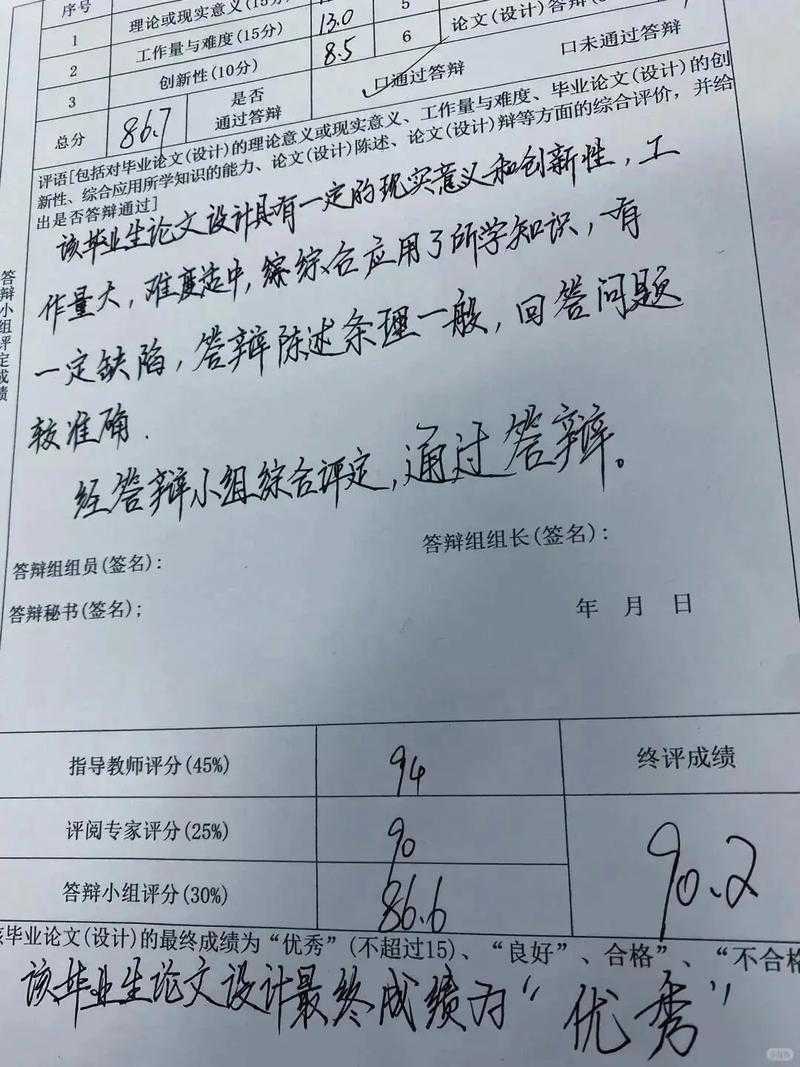 序号
理论或现实意义(15分)
5
论文(设计)答辩
1
工作量与难度(15分)
13.0
6
2
创新性(10分)
8.5
口通过答辩
口未通过答辩
3
总分
86.7
是否
通过答辩
评语[包括对毕业论文(设计)的理论意义或现实意义、工作量与难度、毕业论文(设计)的创
新性、综合应用所学知识的能力、论文(设计)陈述、论文(设计)辩等方面的综合评价，并给
出是否答辩通过]
该毕业生论文设计具有一定的现实意义和创新性，工
作量大，难度适中，综综合应用了所学知识，有
一定缺陷，答辩陈述条理一般，回答问题
较准确.
经答辩小组综合评定，通过答辩。
答辩小组评定成绩
答辩组组长(签名)：
答辩组组员(签名)：
答辩秘书(签名)；
年 月 日
指导教师评分(45%)
94
终评成绩
评阅专家评分(25%)
90
90.2
答辩小组评分(30%)
86.6
毕业论文(设计)的最终成绩为“优秀”(不超过15)、“良好”、合格”、“不合格
该毕业生论文设计最终成绩为“优秀”